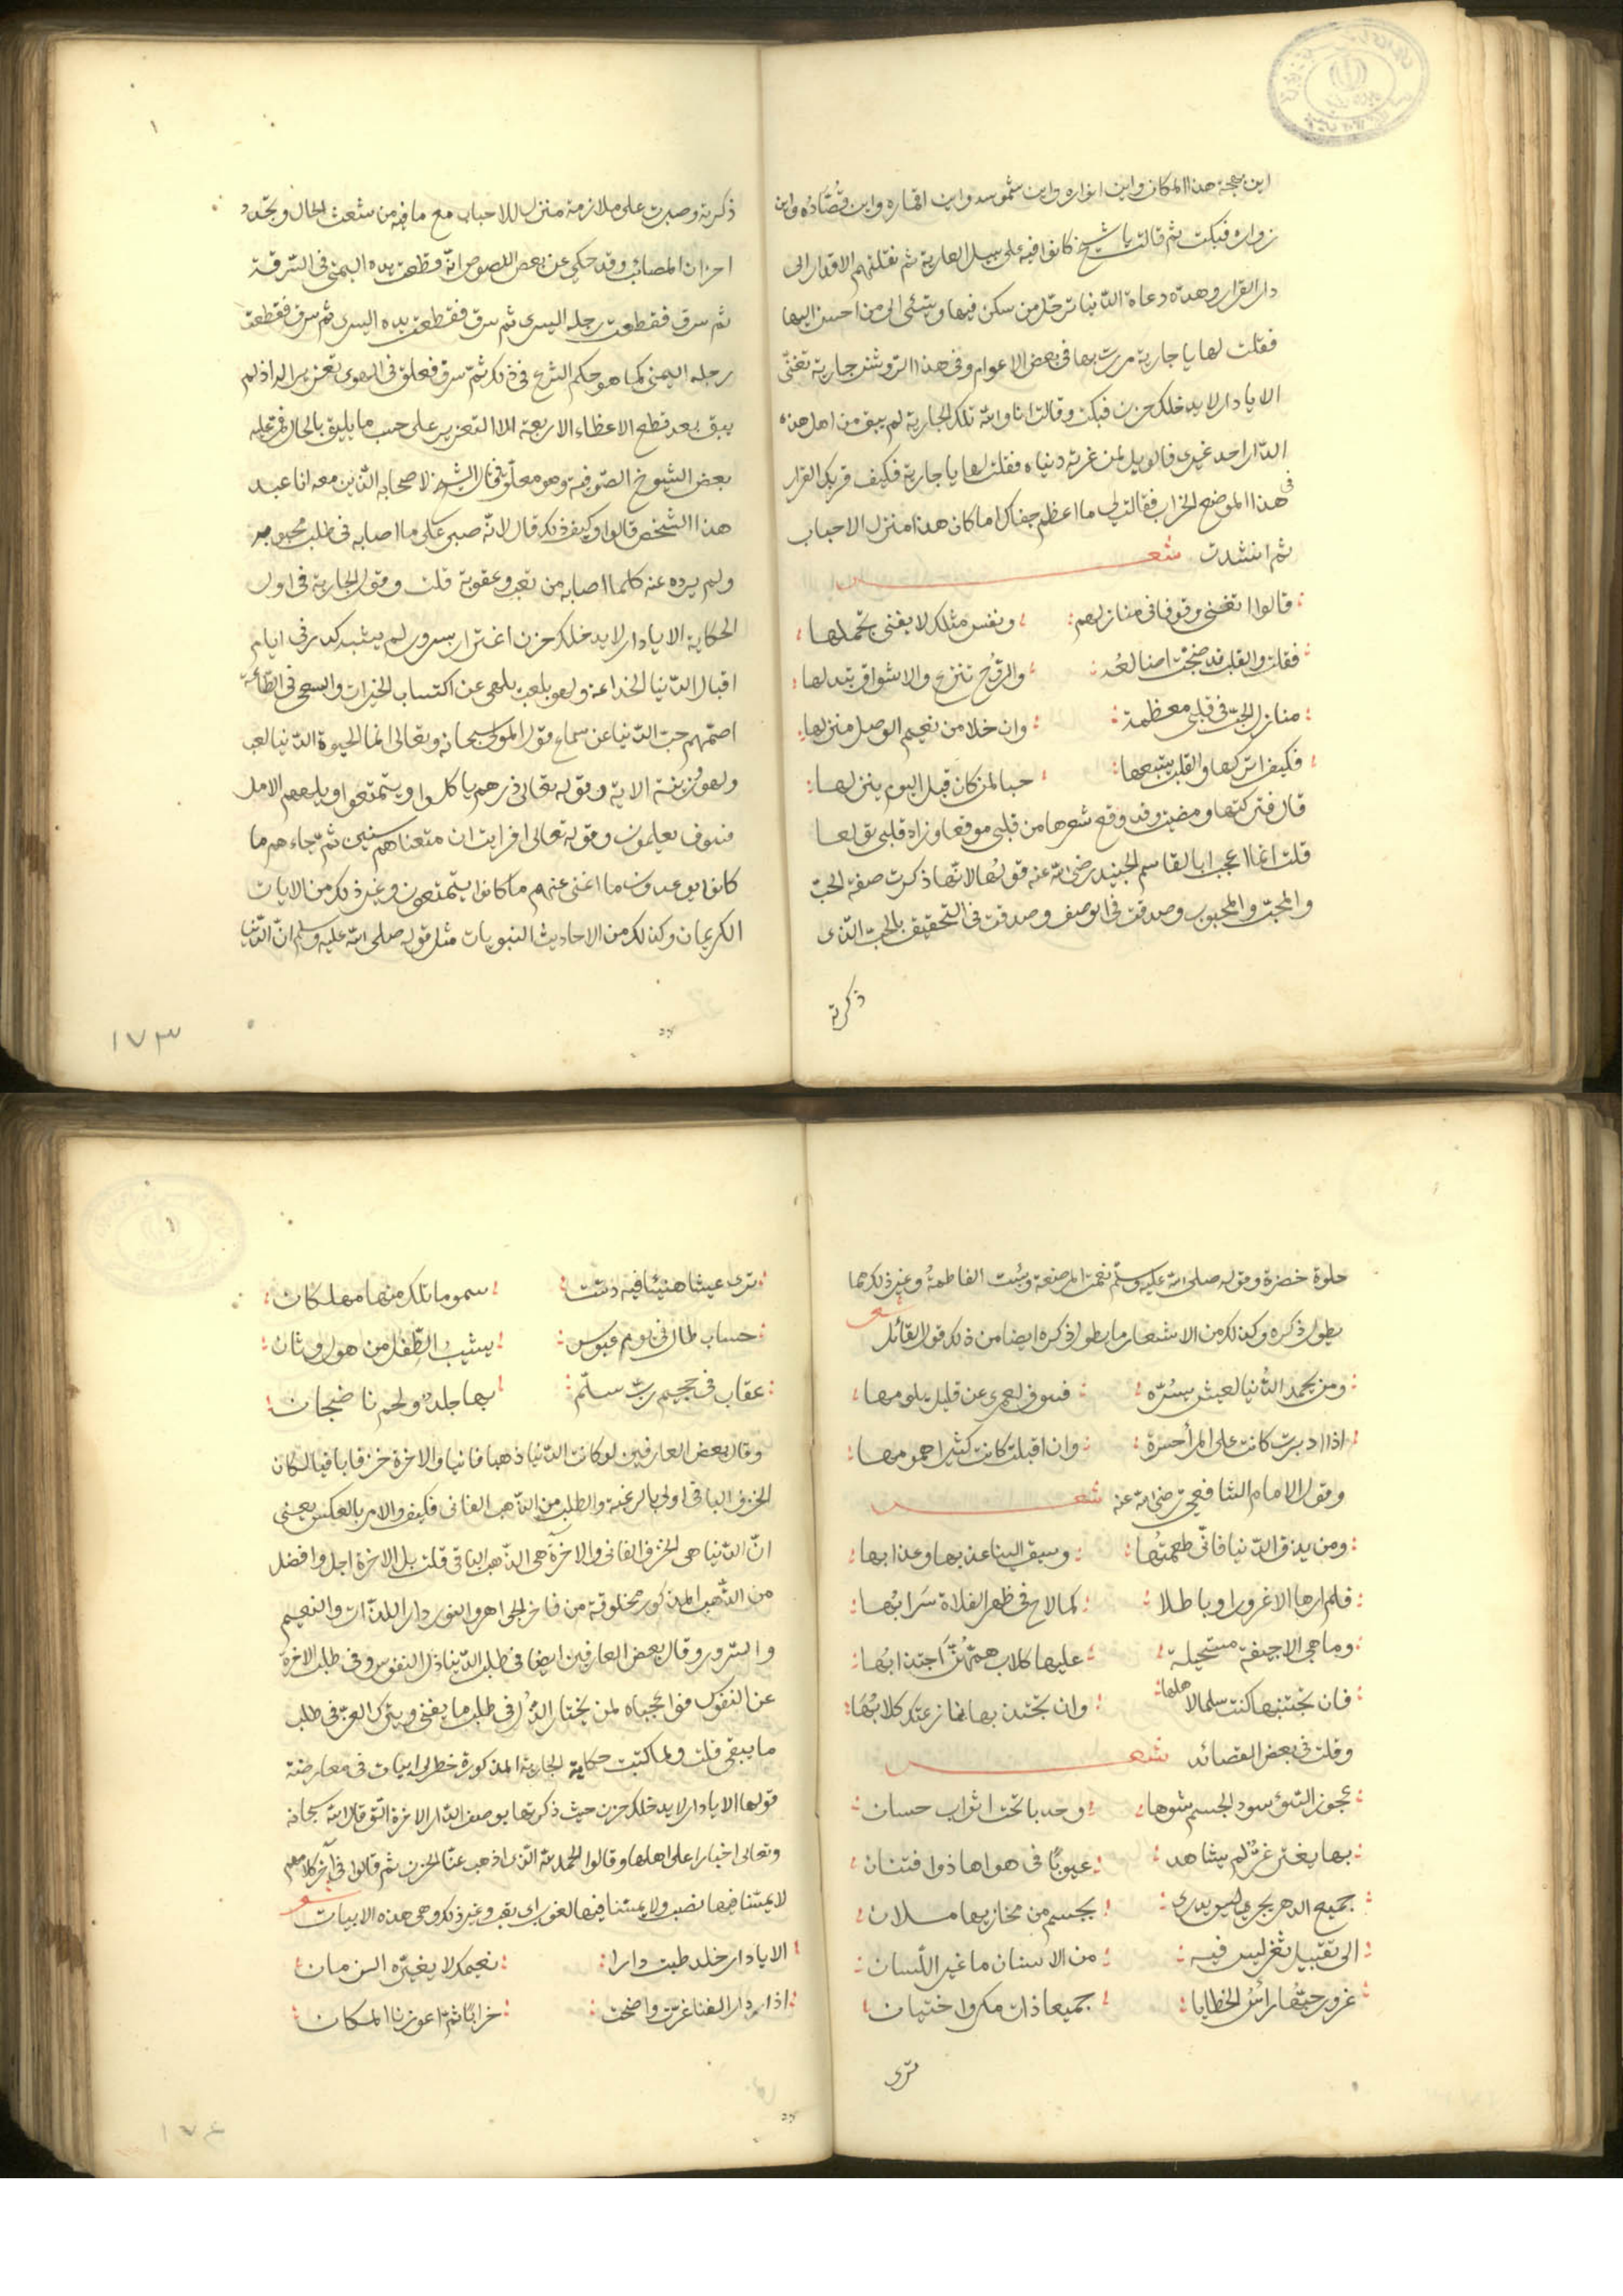 اين بهجة هذا المكان واين انواره واين شموسه واين اقماره واين قصّاده واين
زواره فبكت ثم قالت يا شيخ كانوا فيه على سبيل العارية ثم نقلتهم الاقدار الى
دار القرار وهذه دعاة الدّنيا ترحّل من سكن فيها وتسئ الى من احسن اليها
فقلت لها يا جارية مررت بها فى بعض الاعوام وفى هذا الرّوشن جارية تغنّى
الا يا دار لا يدخلك حزن فبكت وقالت انا والله تلك الجارية لم يبق من اهل هذه
الدّار احد غيرى فالويل لمن غرّته دنياه فقلت لها يا جارية فكيف قر بك القرار
فى هذا الموضع الخراب فقالت لى ما اعظم جفاك اما كان هذا منزل الاحباب
ثم انشدت شعر
قالوا اتغنى وقوفا فى منازلهم ونفس مثلك لا يغنى تحملها
فقلت والقلب قد ضجّت اضالعه والرّوح تنزع والاشواق تبدلها
منازل الحبّ فى قلبى معظمة وان خلا من نعيم الوصل منزلها
فكيف اتركها والقلب يتبعها حبا لمن كان قبل اليوم ينزلها
قال فتركتها ومضيت وقد وقع شعرها من قلبى موقعا وزاد قلبى تولعا
قلت انما اعجب ابا القاسم الجنيد رضى الله عنه قولها لانّها ذكرت صفة الحبّ
والمحبّ والمحبوب وصدقت فى الوصف وصدقت فى التحقيق بالحب الذى
ذكرته
ذكرته وصبرت على ملازمة منزل للاحباب مع ما فيه من شعث الحال وتجدّد
احزان المصائب وقد حكى عن بعض اللصوص انّه قطعت يده اليمنى فى السّرقة
ثم سرق فقطعت رجله اليسرى ثم سرق فقطعت يده اليسرى ثم سرق فقطعت
رجله اليمنى كما هو حكم الشرع فى ذلك ثمّ سرق فعلق فى الهوى تعزيرا له اذ لم
يبق بعد قطع الاعظاء الاربعة الا التعزير على حسب ما يليق بالحال فمرّ عليه
بعض الشيوخ الصّوفية وهو معلّق فقال الشيخ لاصحابه الذين معه انا عبد
هذا الشخص قالوا وكيف ذلك قال لانّه صبر على ما اصابه فى طلب محبوبه
ولم يرده عنه كلما اصابه من تعب وعقوبة قلت وقول الجارية فى اول
الحكاية الا يا دار لا يدخلك حزن اغترار بسرور لم يشبه كدر فى ايام
اقبال الدّنيا الخداعة ولهو بلعب يلهى عن اكتساب الخيرات والسعى فى الطّاعة
اصمّهم حبّ الدّنيا عن سماع قول المولى سبحانه وتعالى انما الحيوة الدّنيا لعب
ولهو وزينة الاية وقوله تعالى ذرهم ياكلوا ويتمتعوا ويلههم الامل
فسوف يعلمون وقوله تعالى افرايت ان متعناهم سنين ثمّ جاءهم ما
كانوا يوعدون ما اغنى عنهم ما كانوا يتمتعون وغير ذلك من الايات
الكريمات وكذلك من الاحاديث النبويات مثل قوله صلى الله عليه وسلم انّ الدّنيا
١٧٣
حلوة خضرة وقوله صلى الله عليه وسلّم نعمت المرضعة وبئست الفاطمة وغير ذلك مما
يطول ذكره وكذلك من الاشعار ما يطول ذكره ايضا من ذلك قول القائل شعر
ومن يحمد الدّنيا لعيش يسُرّه فسوف لعمرى عن قليل يلومها
اذا ادبرت كانت على المرأ حسرة وان اقبلت كانت كثيرا همومها
وقول الامام الشافعى رضى الله عنه شعر
ومن يذق الدّنيا فانّى طعمتها وسيق الينا عذبها وعذابها
فلم ارها الا غرورا وباطلا كما لاح فى ظهر الفلاة سَرابُها
وما هى الا جيفة مستحيلة عليها كلاب همّهنّ اجتذابها
فان تجتنبها كنت سلما لاهلها وان تجتذبها نازعتك كلابُهَا
وقلت فى بعض القصائد شعر
عجوز السّوء سود الجسم شوها وحدبا تحت اثواب حسان
بها يغتر غرّ لم يشاهد عيوبًا فى هواها ذوا فتنان
جميع الدهر يجرى ليس يدرى بجسم من مخازيها ملان
الى تقبيل ثغر ليس فيه من الاسنان ما غير اللّسان
غرور حبّها رأس الخطايا جميعا ذات مكر واختيان
ترى
ترى عيشا هنيئا فيه دسّت سموما تلك منها مهلكان
حساب طال فى يوم عبوس يشيبُ الطّفل من هول وثان
عقاب فى جحيم ربّ سلّم بها جلد ولحم ناضجان
وقال بعض العارفين لو كانت الدّنيا ذهبا فانيا والاخرة خزفا باقيا لكان
الخزف الباقى اولى بالرغبة والطلب من الذّهب الفانى فكيف والامر بالعكس يعنى
انّ الدّنيا هى الخزف الفانى والاخرة هى الذّهب الباقى قلت بل الاخرة اجل وافضل
من الذّهب المذكور مخلوقة من فاخر الجواهر والنور دار اللذّات والنعيم
والسّرور وقال بعض العارفين ايضا فى طلب الدّنيا ذلّ النفوس وفى طلب الاخرة
عن النفوس فوا عجباه لمن يختار الذلّ فى طلب ما يفنى ويترك العزّ فى طلب
ما يبقى قلت ولما كتبت حكاية الجارية المذكورة خطر لى ابيات فى معارضة
قولها الا يا دار لا يدخلك حزن حيث ذكرتها بوصف الدّار الاخرة الّتى قال الله سبحانه
وتعالى اخبارا على اهلها وقالوا الحمد لله الّذى اذهب عنّا الحزن ثم قالوا فى آخر كلامهم
لا يمسّنا فيها نصب ولا يمسّنا فيها لغوب اى تعب وغير ذلك وهى هذه الابيات شعر
الا يا دار خلد طبت دارا نعيمك لا يغيّره الزمان
اذا دار الفنا غرّت واضحت خرابًا ثمّ اعوزنا المكان
١٧٤